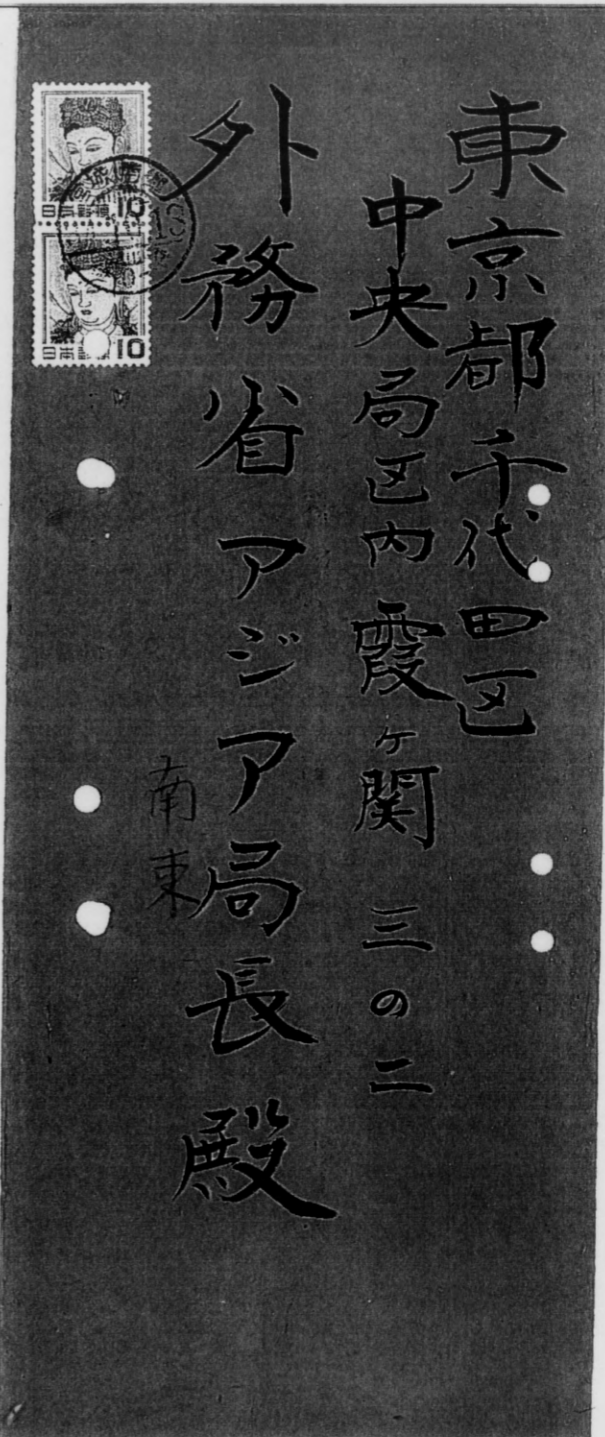 東京都千代田区
中央局区内霞ヶ関 三の二
外務省アジア局長殿
南東
日本郵便 10
日本郵便 10